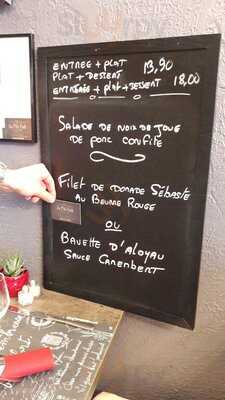 ENTREE + PLAT 13,90
PLAT + DESSERT
ENTREE + PLAT + DESSERT 18,00
SALADE DE NOIX DE JOUE
DE PORC CONFITE
FILET DE DORADE SÉBASTE
AU BEURRE ROUGE
OU
BAVETTE D'ALOYAU
SAUCE CAMEMBERT